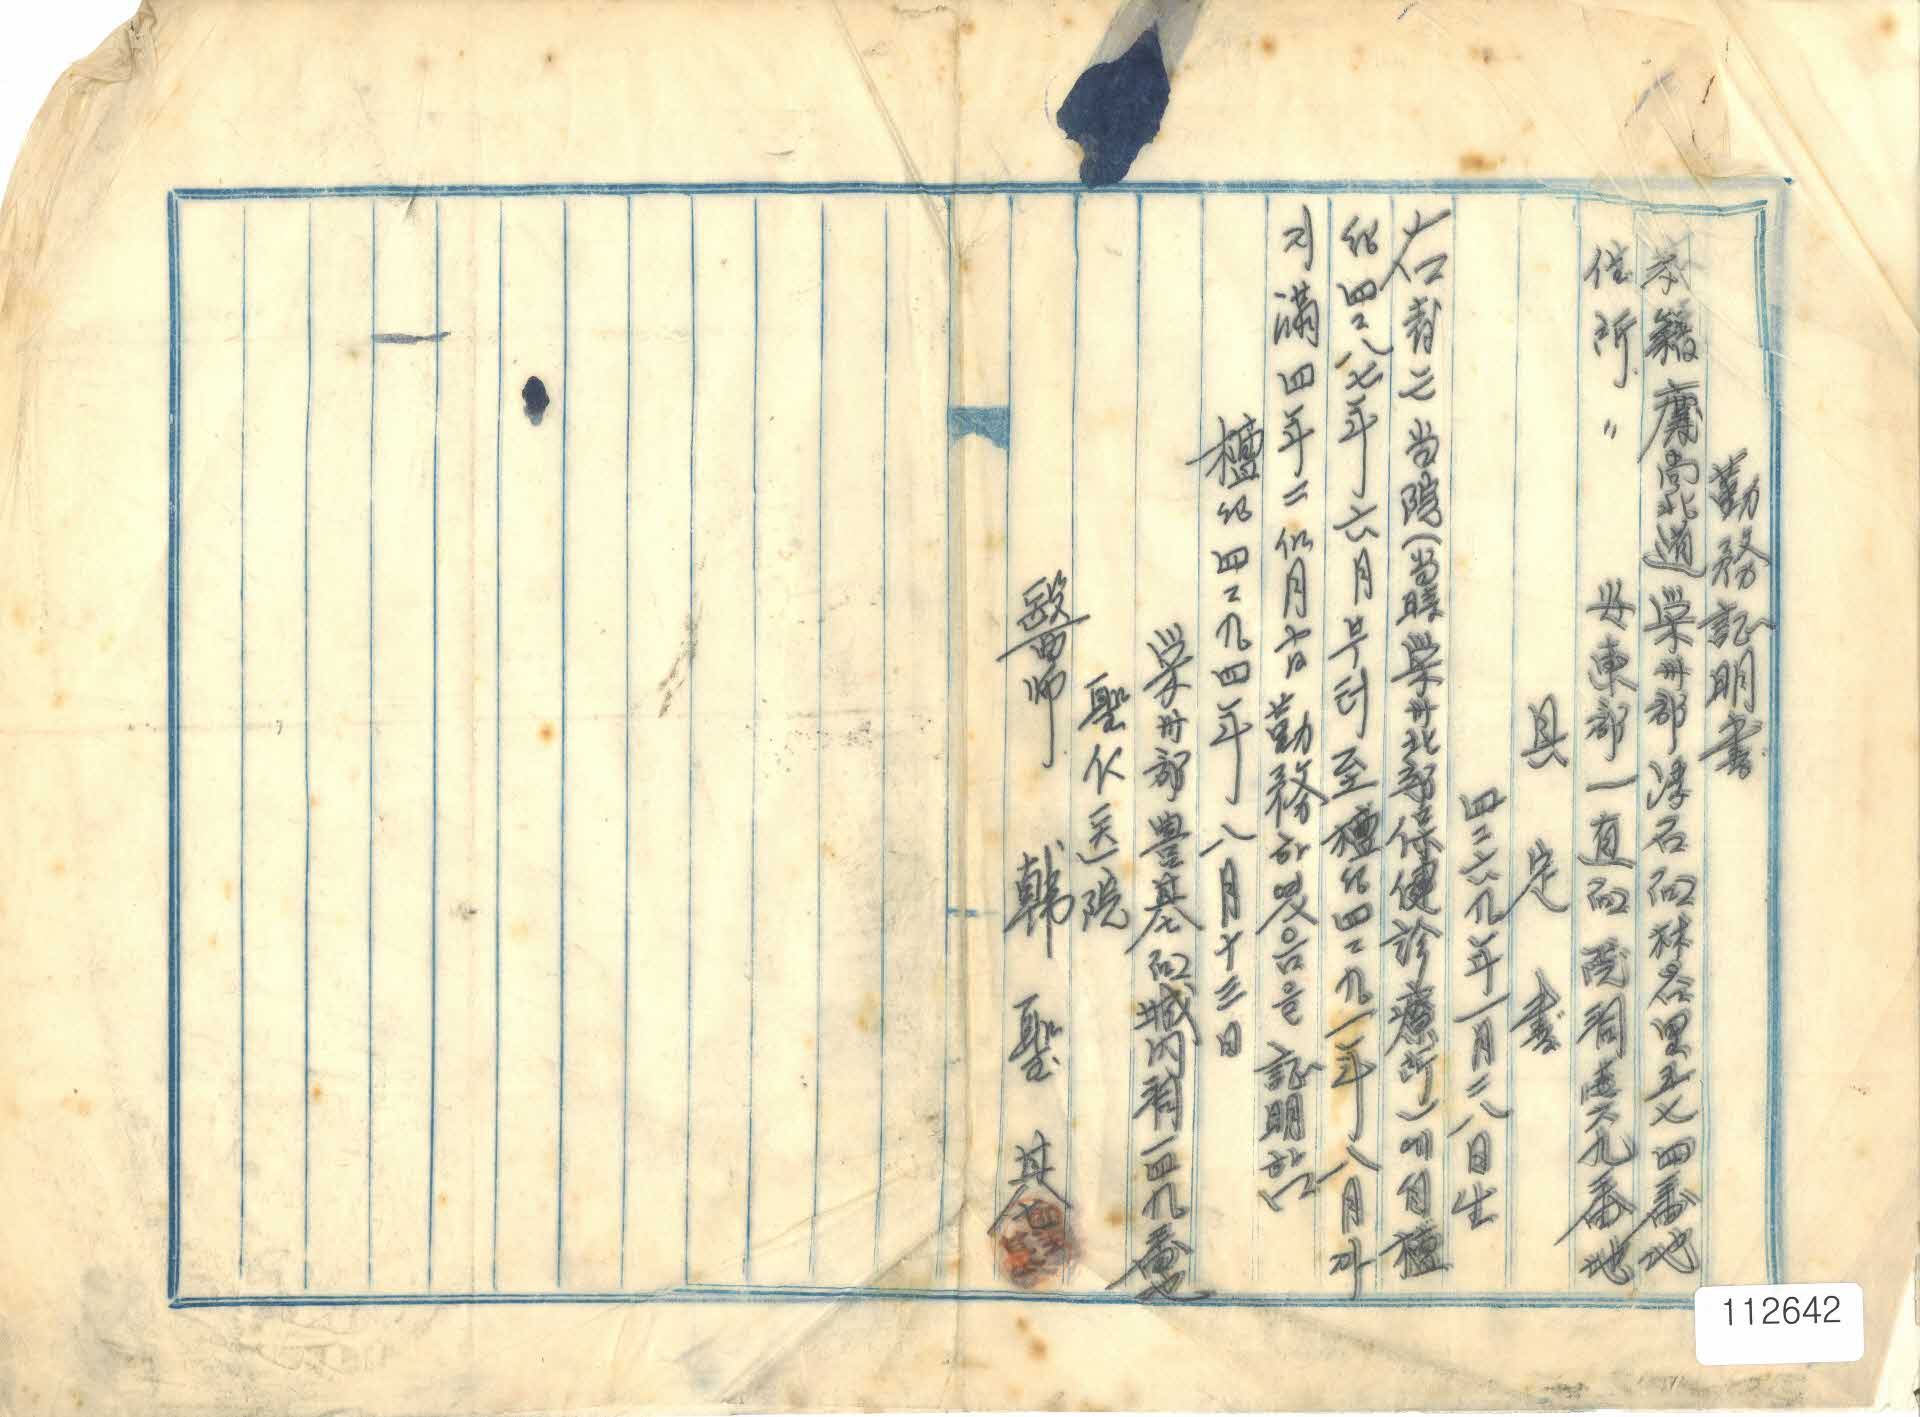 勤務証明書
本籍 慶尚北道 榮州郡 浮石面 林谷里 五七四番地
住所 〃 安東郡 一直面 院洞 六九番地
具 定 書
四二六九年一月二八日生
右者는 当院(当時 榮州北部保健診療所)에서 檀
紀四二八七年六月부터 至檀紀四二九一年八月까
지 滿四年二個月間 勤務하였음을 証明함
檀紀四二九四年八月十三日
榮州郡 豊基面 城内洞 一四九番地
聖仁医院
醫師 韓聖其
112642